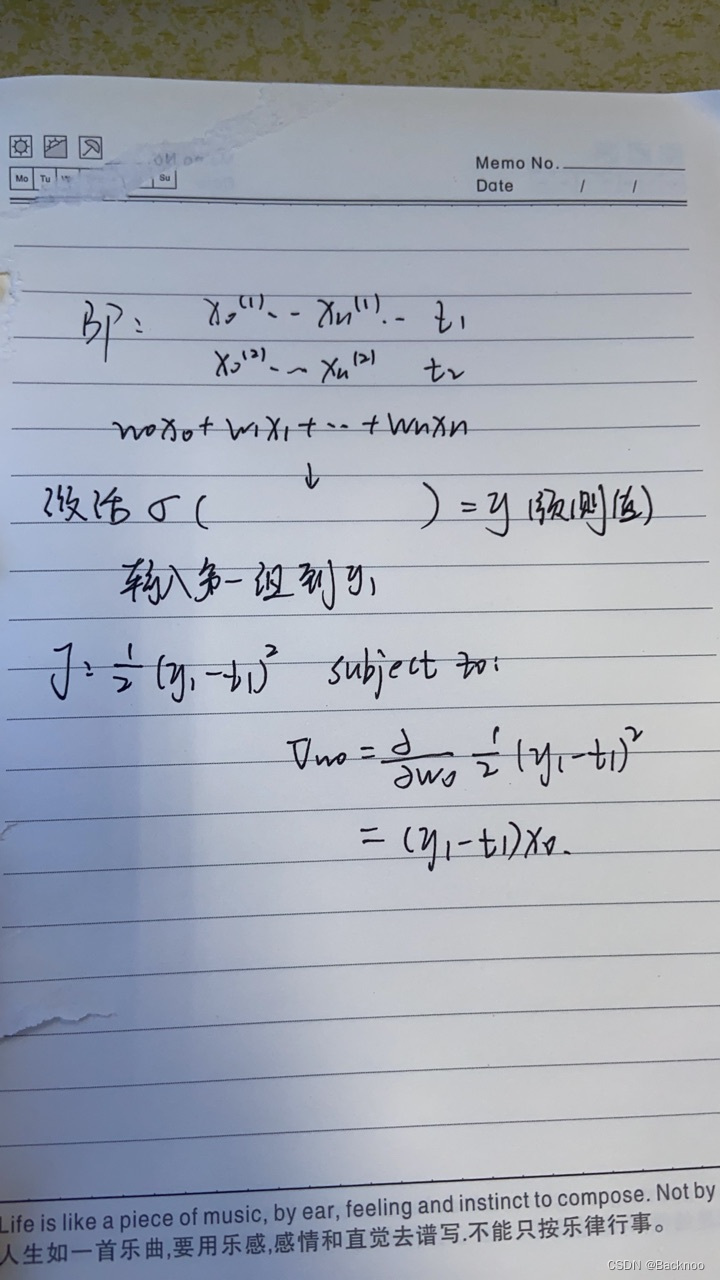 Memo No.
Mo Tu Su
Date / /
BP: x₀⁽¹⁾-- xₙ⁽¹⁾-- t₁
x₀⁽²⁾-- xₙ⁽²⁾ t₂
w₀x₀+w₁x₁+--+wₙxₙ
↓
激活σ( )=y(预测值)
输入第一组到y₁
J: 1/2 (y₁-t₁)² subject to:
∇w₀ = ∂/∂w₀ 1/2 (y₁-t₁)²
= (y₁-t₁)x₀.
Life is like a piece of music, by ear, feeling and instinct to compose. Not by
人生如一首乐曲,要用乐感,感情和直觉去谱写.不能只按乐律行事。
CSDN @Backnoo